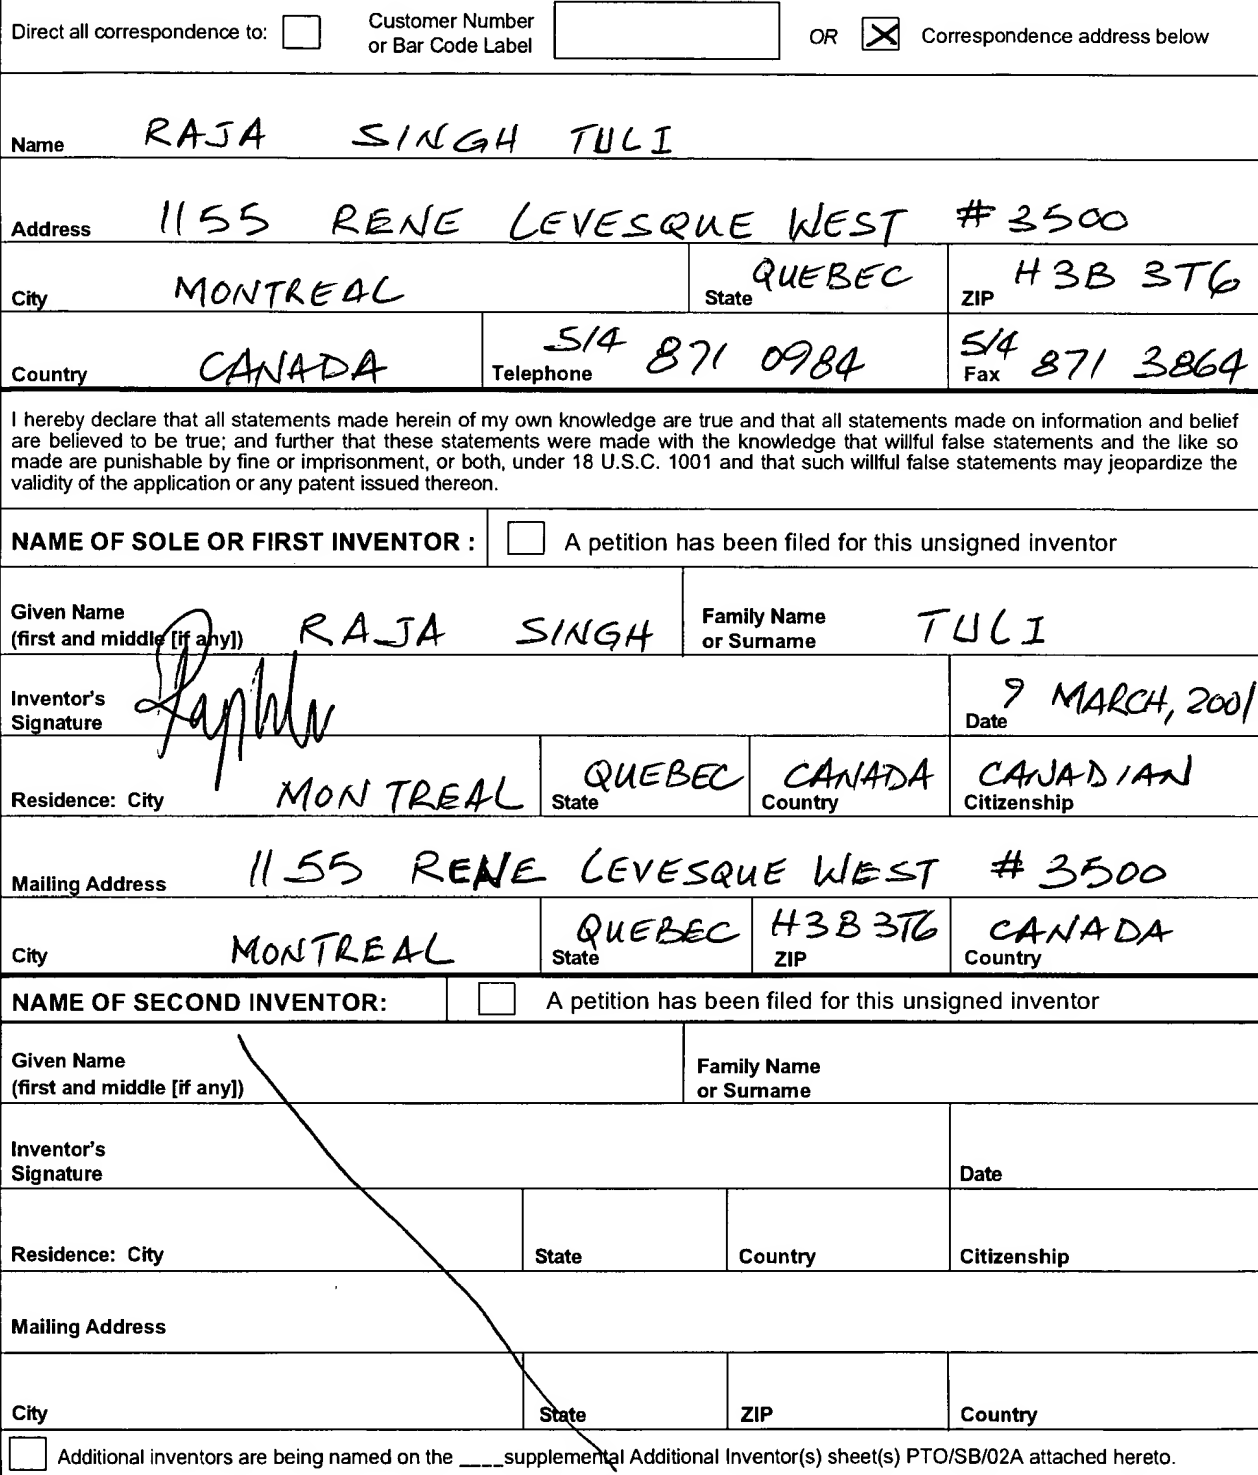 Direct all correspondence to: Customer Number or Bar Code Label OR Correspondence address below
Name RAJA SINGH TULI
Address 1155 RENE LEVESQUE WEST # 3500
City MONTREAL State QUEBEC ZIP H3B 3T6
Country CANADA Telephone 514 871 0984 Fax 514 871 3864
I hereby declare that all statements made herein of my own knowledge are true and that all statements made on information and belief
are believed to be true; and further that these statements were made with the knowledge that willful false statements and the like so
made are punishable by fine or imprisonment, or both, under 18 U.S.C. 1001 and that such willful false statements may jeopardize the
validity of the application or any patent issued thereon.
NAME OF SOLE OR FIRST INVENTOR : A petition has been filed for this unsigned inventor
Given Name (first and middle [if any]) RAJA SINGH Family Name or Surname TULI
Inventor's Signature Date 9 MARCH, 2001
Residence: City MONTREAL State QUEBEC Country CANADA Citizenship CANADIAN
Mailing Address 1155 RENE LEVESQUE WEST # 3500
City MONTREAL State QUEBEC ZIP H3B 3T6 Country CANADA
NAME OF SECOND INVENTOR: A petition has been filed for this unsigned inventor
Given Name (first and middle [if any]) Family Name or Surname
Inventor's Signature Date
Residence: City State Country Citizenship
Mailing Address
City State ZIP Country
Additional inventors are being named on the ____supplemental Additional Inventor(s) sheet(s) PTO/SB/02A attached hereto.